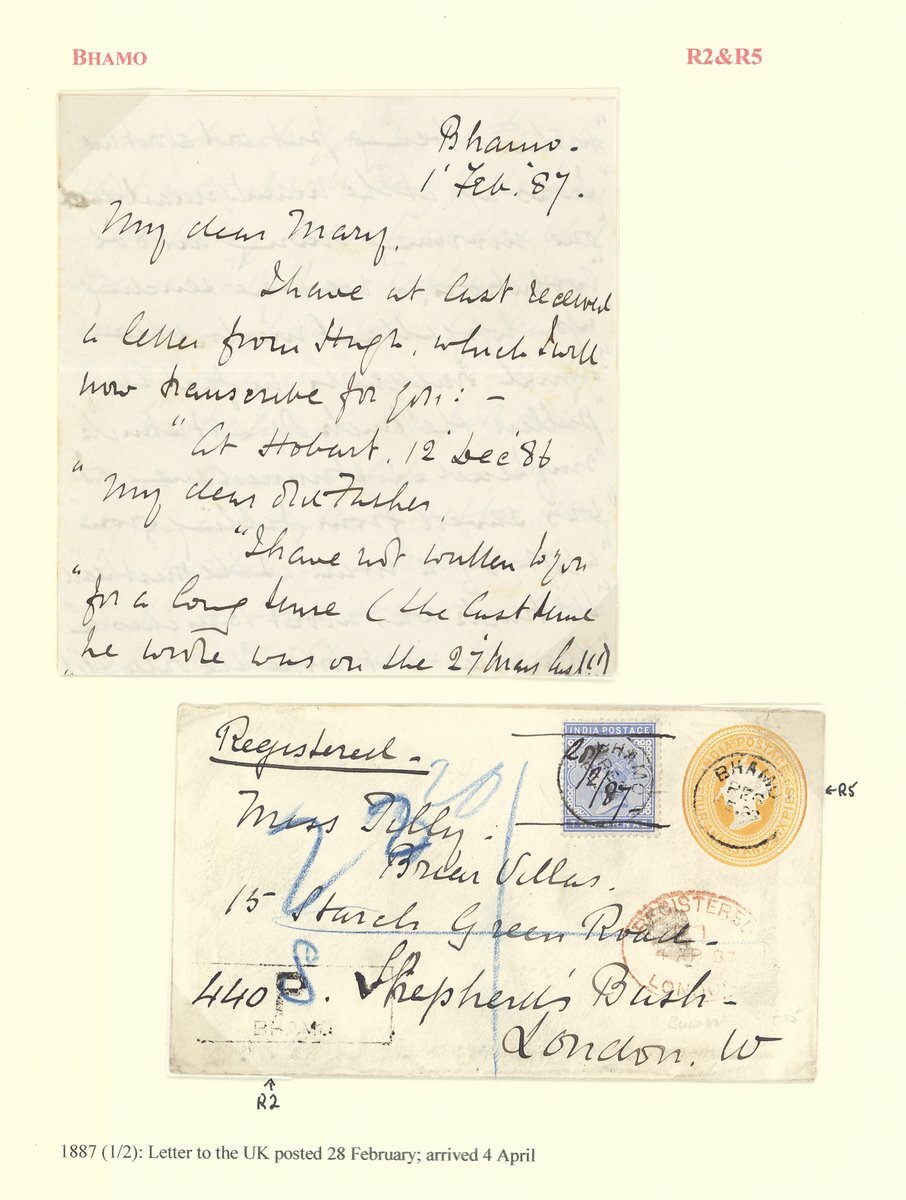 BHAMO
R2&R5
Bhamo -
1' Feb. '87.
My dear Mary,
I have at last received
a letter from Hugh, which I will
now transcribe for you: -
"At Hobart, 12 Dec '86
"My dear old Father,
"I have not written to you
"for a long time (the last time
"he wrote was on the 27 May last!!)
Registered -
INDIA POSTAGE
BHAMO
28/2/87
BHAMO
R5
Miss Tilly -
Briar Villas.
15 Starch Green Road -
REGISTERED
4 AP 87
LONDON
Shepherd's Bush -
440
R
BHAMO
London. W
R2
1887 (1/2): Letter to the UK posted 28 February; arrived 4 April